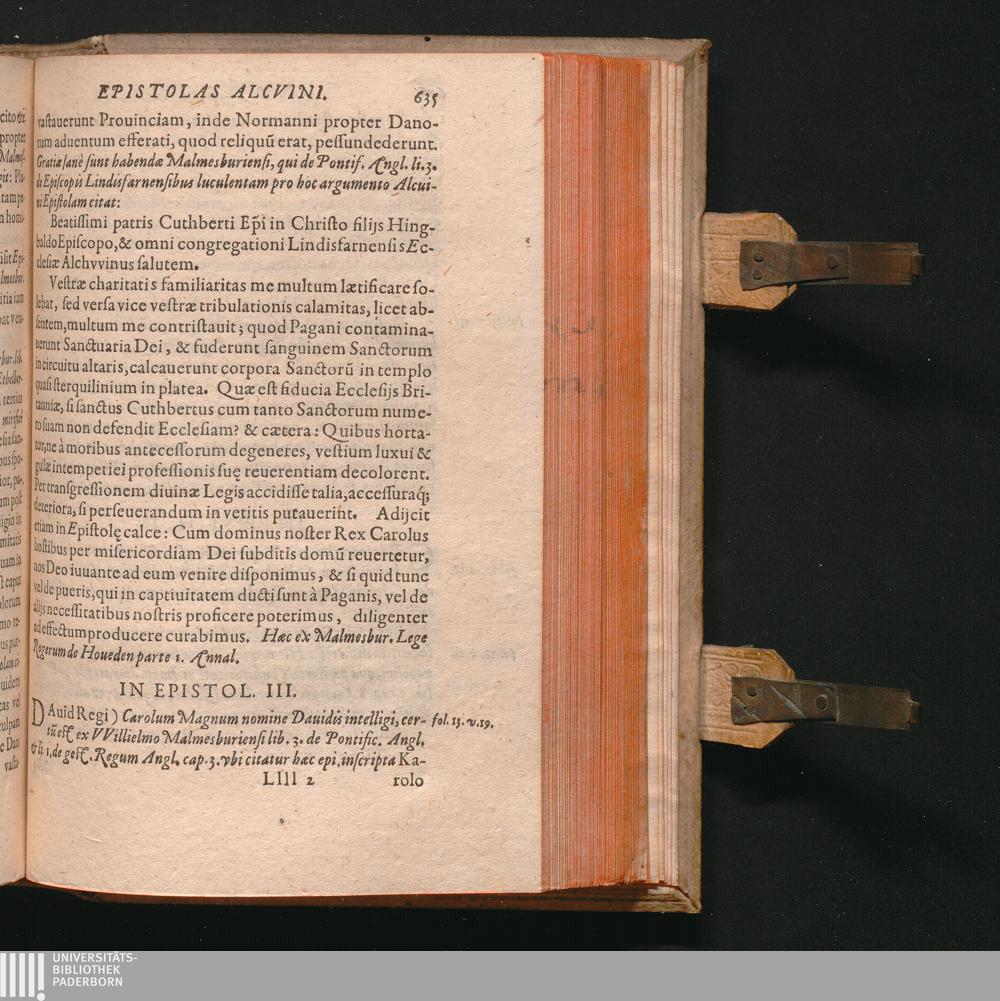 EPISTOLAS ALCVINI. 635
vaſtauerunt Prouinciam, inde Normanni propter Dano-
rum aduentum efferati, quod reliquū erat, peſſundederunt.
Gratiæ ſanè ſunt habendæ Malmesburienſi, qui de Pontif. Angl. li.3.
de Epiſcopis Lindisfarnenſibus luculentam pro hoc argumento Alcui-
ni Epiſtolam citat:
Beatiſſimi patris Cuthberti Ep̃i in Chriſto filijs Hing-
baldo Epiſcopo, & omni congregationi Lindisfarnenſis Ec-
cleſiæ Alchvvinus ſalutem.
Veſtræ charitatis familiaritas me multum lætificare ſo-
lebat, ſed verſa vice veſtræ tribulationis calamitas, licet ab-
ſentem, multum me contriſtauit; quod Pagani contamina-
uerunt Sanctuaria Dei, & fuderunt ſanguinem Sanctorum
in circuitu altaris, calcauerunt corpora Sanctorū in templo
quaſi ſterquilinium in platea. Quæ eſt fiducia Eccleſijs Bri-
tanniæ, ſi ſanctus Cuthbertus cum tanto Sanctorum nume-
ro ſuam non defendit Eccleſiam? & cætera: Quibus horta-
tur, ne à moribus anteceſſorum degeneres, veſtium luxui &
gulæ intemperiei profeſſionis ſuę reuerentiam decolorent.
Per tranſgreſſionem diuinæ Legis accidiſſe talia, acceſſuraq́;
deteriora, ſi perſeuerandum in vetitis putauerint. Adijcit
etiam in Epiſtolę calce: Cum dominus noſter Rex Carolus
hoſtibus per miſericordiam Dei ſubditis domū reuertetur,
nos Deo iuuante ad eum venire diſponimus, & ſi quid tunc
vel de pueris, qui in captiuitatem ducti ſunt à Paganis, vel de
alijs neceſſitatibus noſtris proficere poterimus, diligenter
ad effectum producere curabimus. Hæc ex Malmesbur. Lege
Rogerum de Houeden parte 1. Annal.
IN EPISTOL. III.
DAuid Regi) Carolum Magnum nomine Dauidis intelligi, cer- fol. 13. v.19.
tū eſt ex VVillielmo Malmesburienſi lib. 3. de Pontific. Angl.
& li. 1. de geſt. Regum Angl. cap. 3. vbi citatur hæc epi. inſcripta Ka-
Llll 2 rolo
UNIVERSITÄTS-
BIBLIOTHEK
PADERBORN